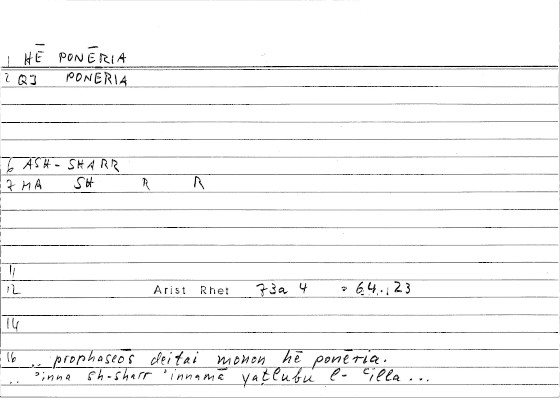 1 HĒ PONĒRIA
2 QJ PONĒRIA
6 ASH-SHARR
7 MA SH R R
11
12 Arist Rhet 73a 4 = 64.,23
14
16 .. prophaseōs deitai monon hē ponēria.
.. ʾinna sh-sharr ʾinnamā yaṭlubu l-ʿilla...